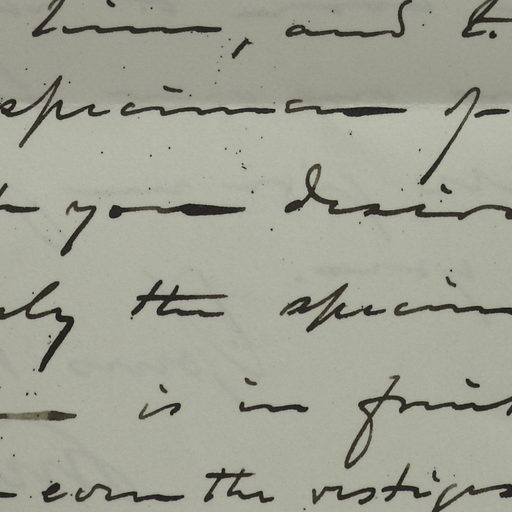 time, and t
specimen of
you desire
ly the specim
is in fruit
even the vestiges